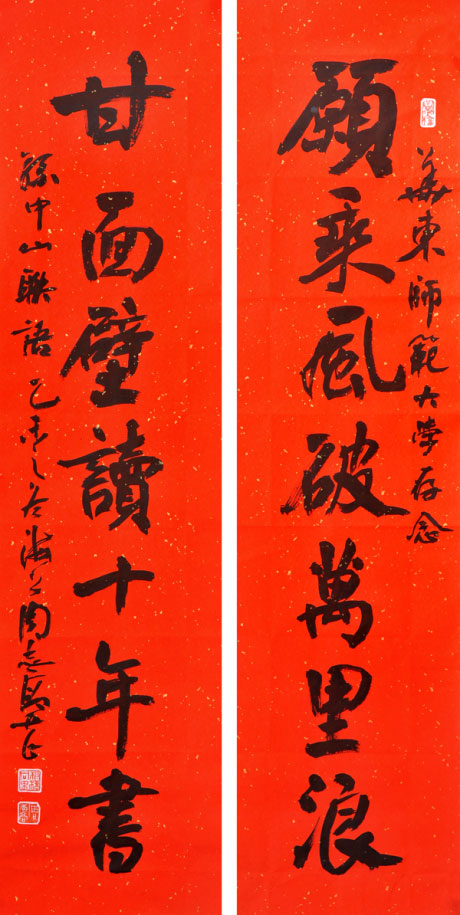 華東師範大學存念
願乘風破萬里浪
甘面壁讀十年書
孫中山聯語 乙未之冬海上周志高